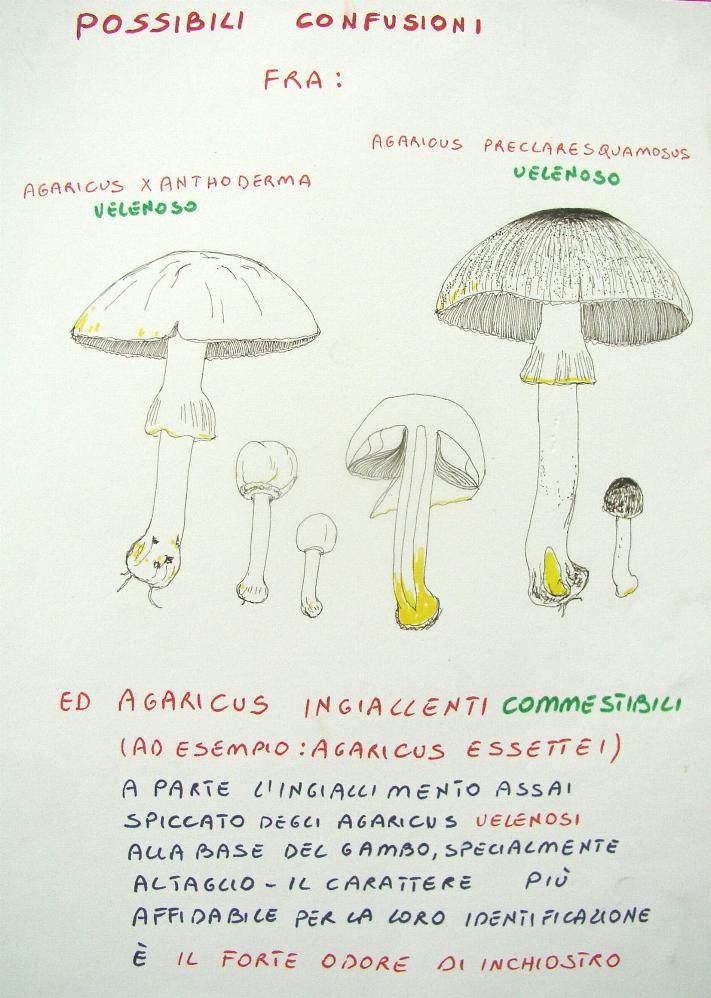 POSSIBILI CONFUSIONI
FRA:
AGARICUS PRECLARESQUAMOSUS
VELENOSO
AGARICUS XANTHODERMA
VELENOSO
ED AGARICUS INGIALLENTI COMMESTIBILI
(AD ESEMPIO: AGARICUS ESSETTEI)
A PARTE L'INGIALLIMENTO ASSAI
SPICCATO DEGLI AGARICUS VELENOSI
ALLA BASE DEL GAMBO, SPECIALMENTE
AL TAGLIO - IL CARATTERE PIÙ
AFFIDABILE PER LA LORO IDENTIFICAZIONE
È IL FORTE ODORE DI INCHIOSTRO